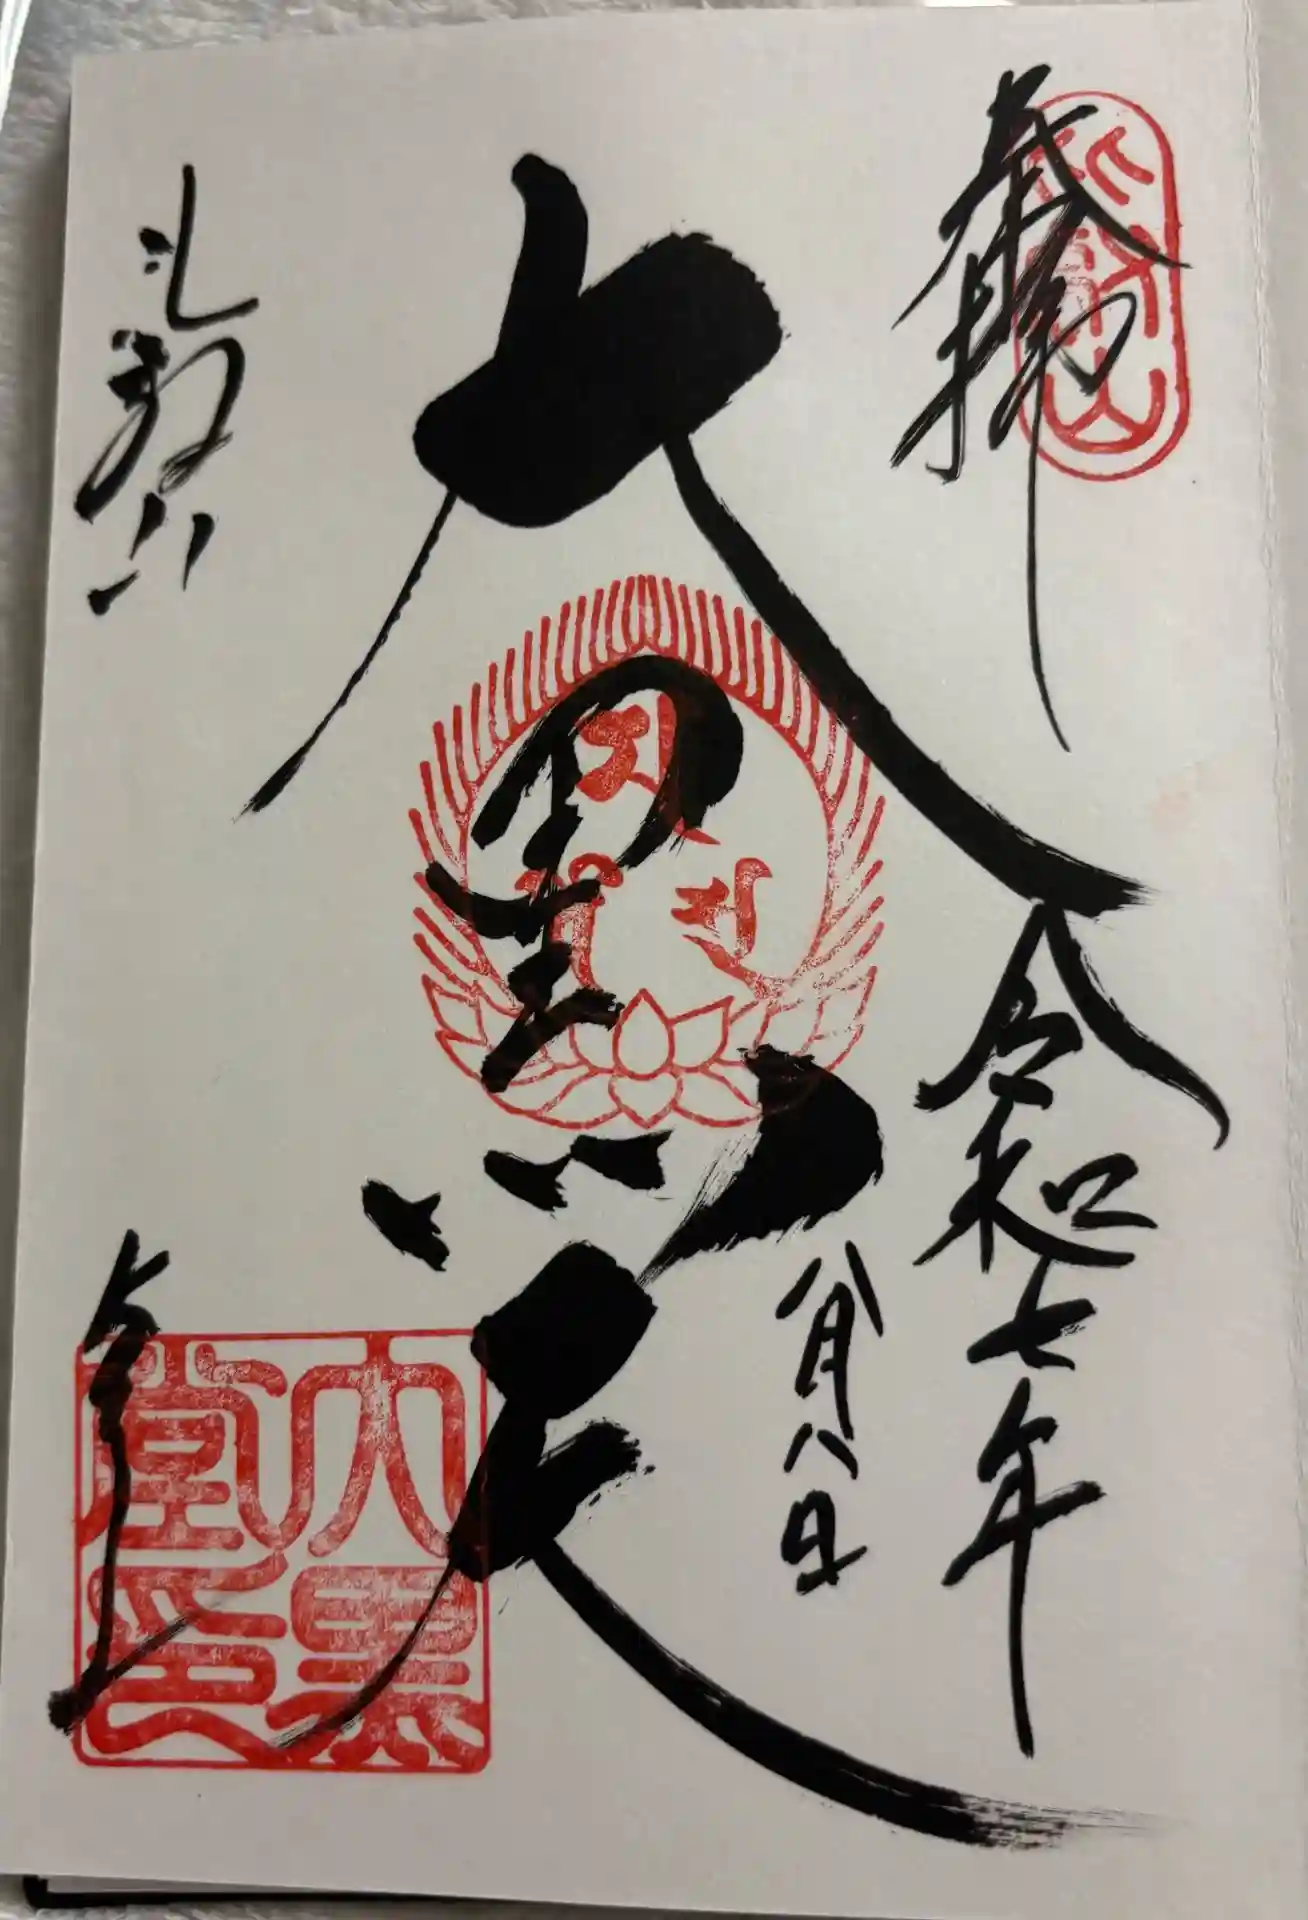 奉拝
比叡山
令和七年
八月八日
大黒天
比叡山
大黒
堂印